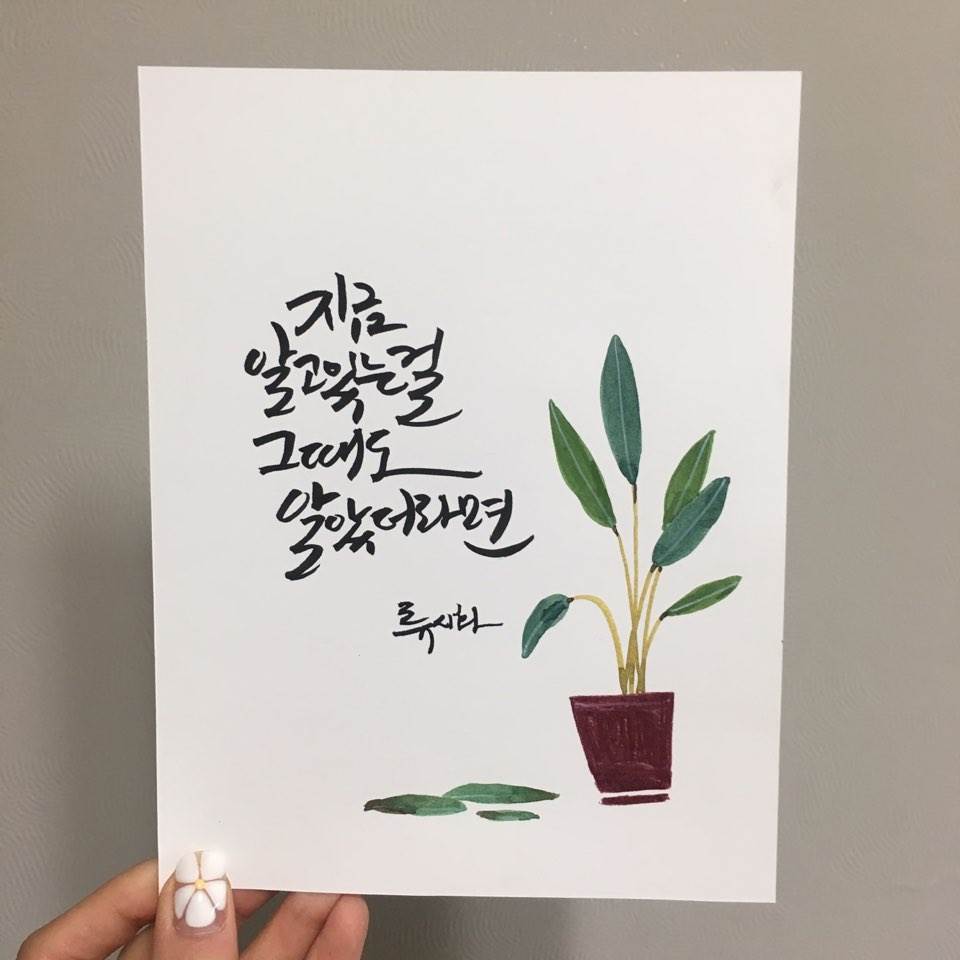 지금
알고있는걸
그때도
알았더라면
류시화